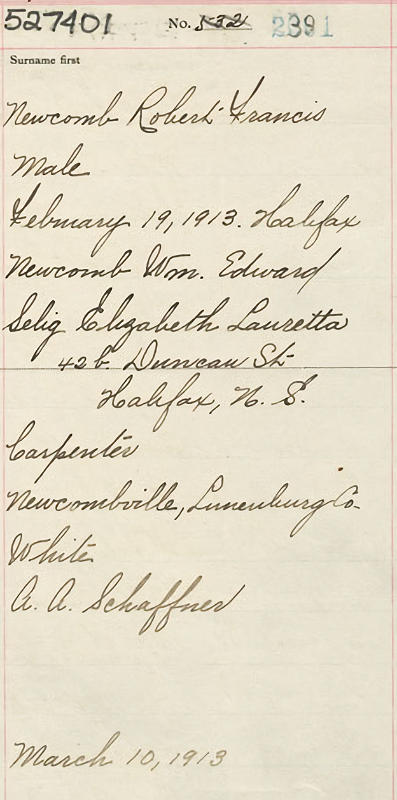 527401 No. 532 2391
Surname first
Newcomb Robert Francis
Male
February 19, 1913. Halifax
Newcomb Wm. Edward
Selig Elizabeth Lauretta
42 b. Duncan St
Halifax, N. S.
Carpenter
Newcombville, Lunenburg Co.
White
A. A. Schaffner
March 10, 1913